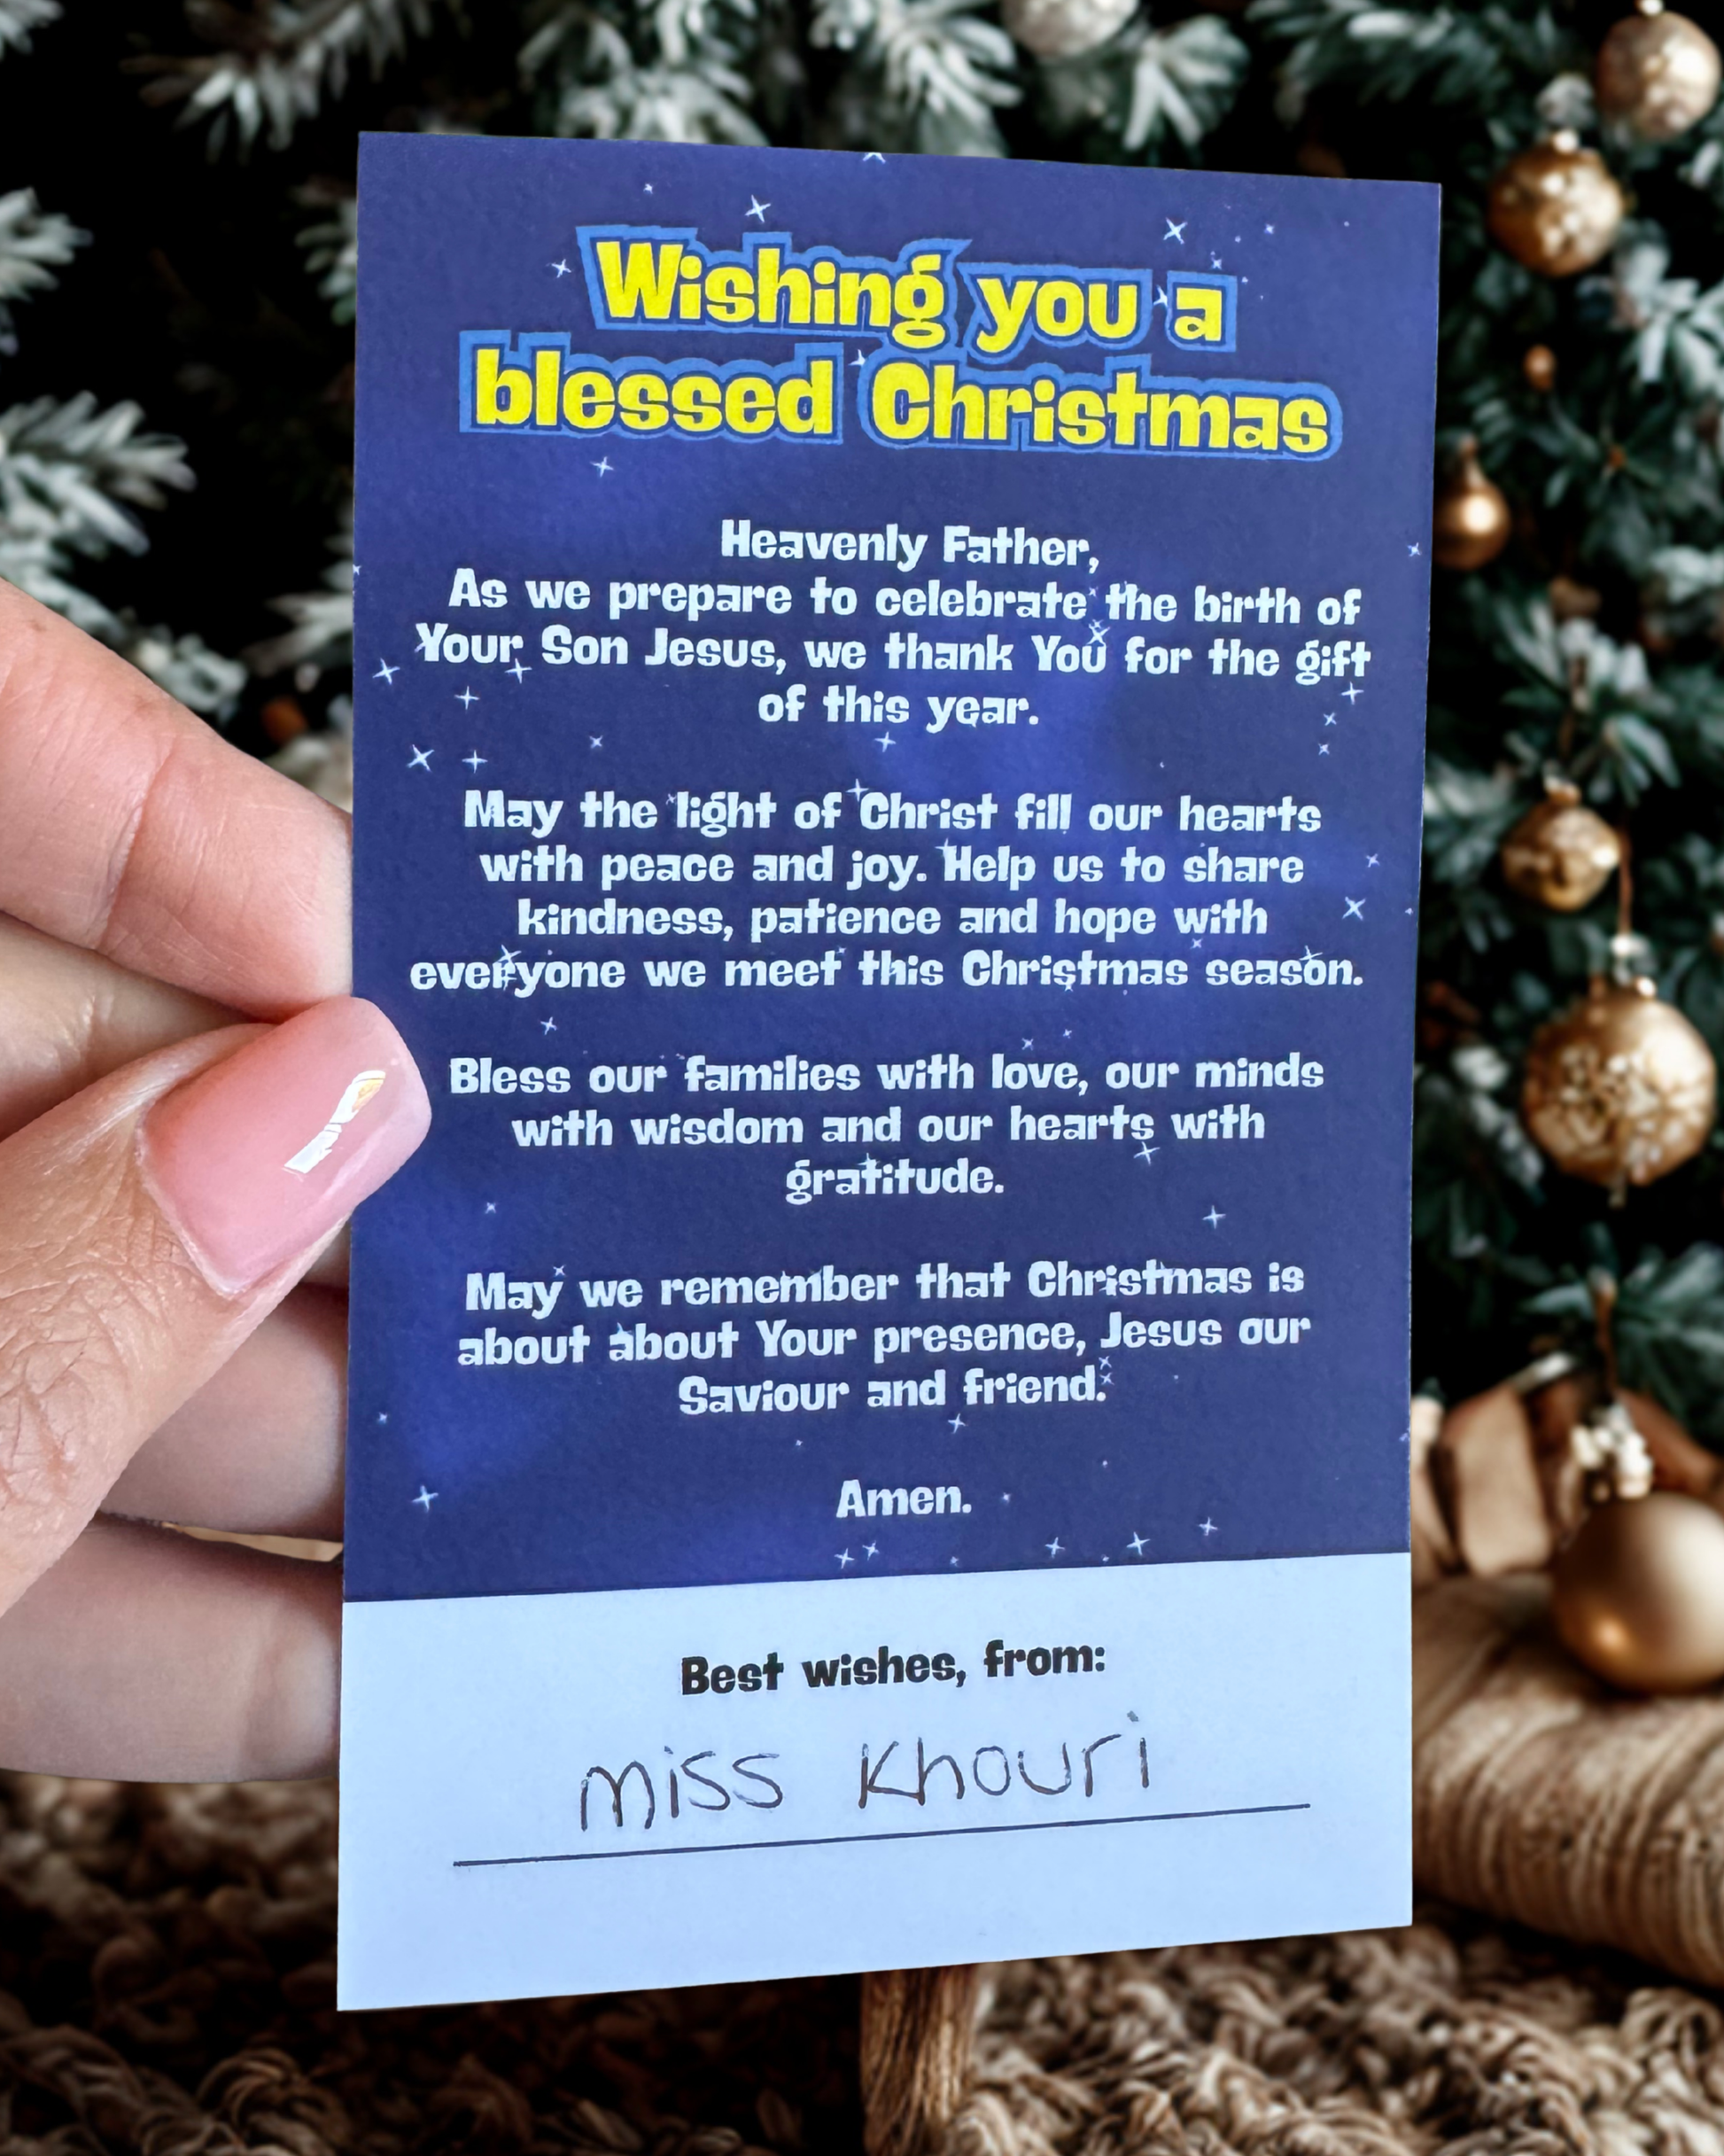 Wishing you a
blessed Christmas
Heavenly Father,
As we prepare to celebrate the birth of
Your Son Jesus, we thank You for the gift
of this year.
May the light of Christ fill our hearts
with peace and joy. Help us to share
kindness, patience and hope with
everyone we meet this Christmas season.
Bless our families with love, our minds
with wisdom and our hearts with
gratitude.
May we remember that Christmas is
about about Your presence, Jesus our
Saviour and friend.
Amen.
Best wishes, from:
Miss Khouri